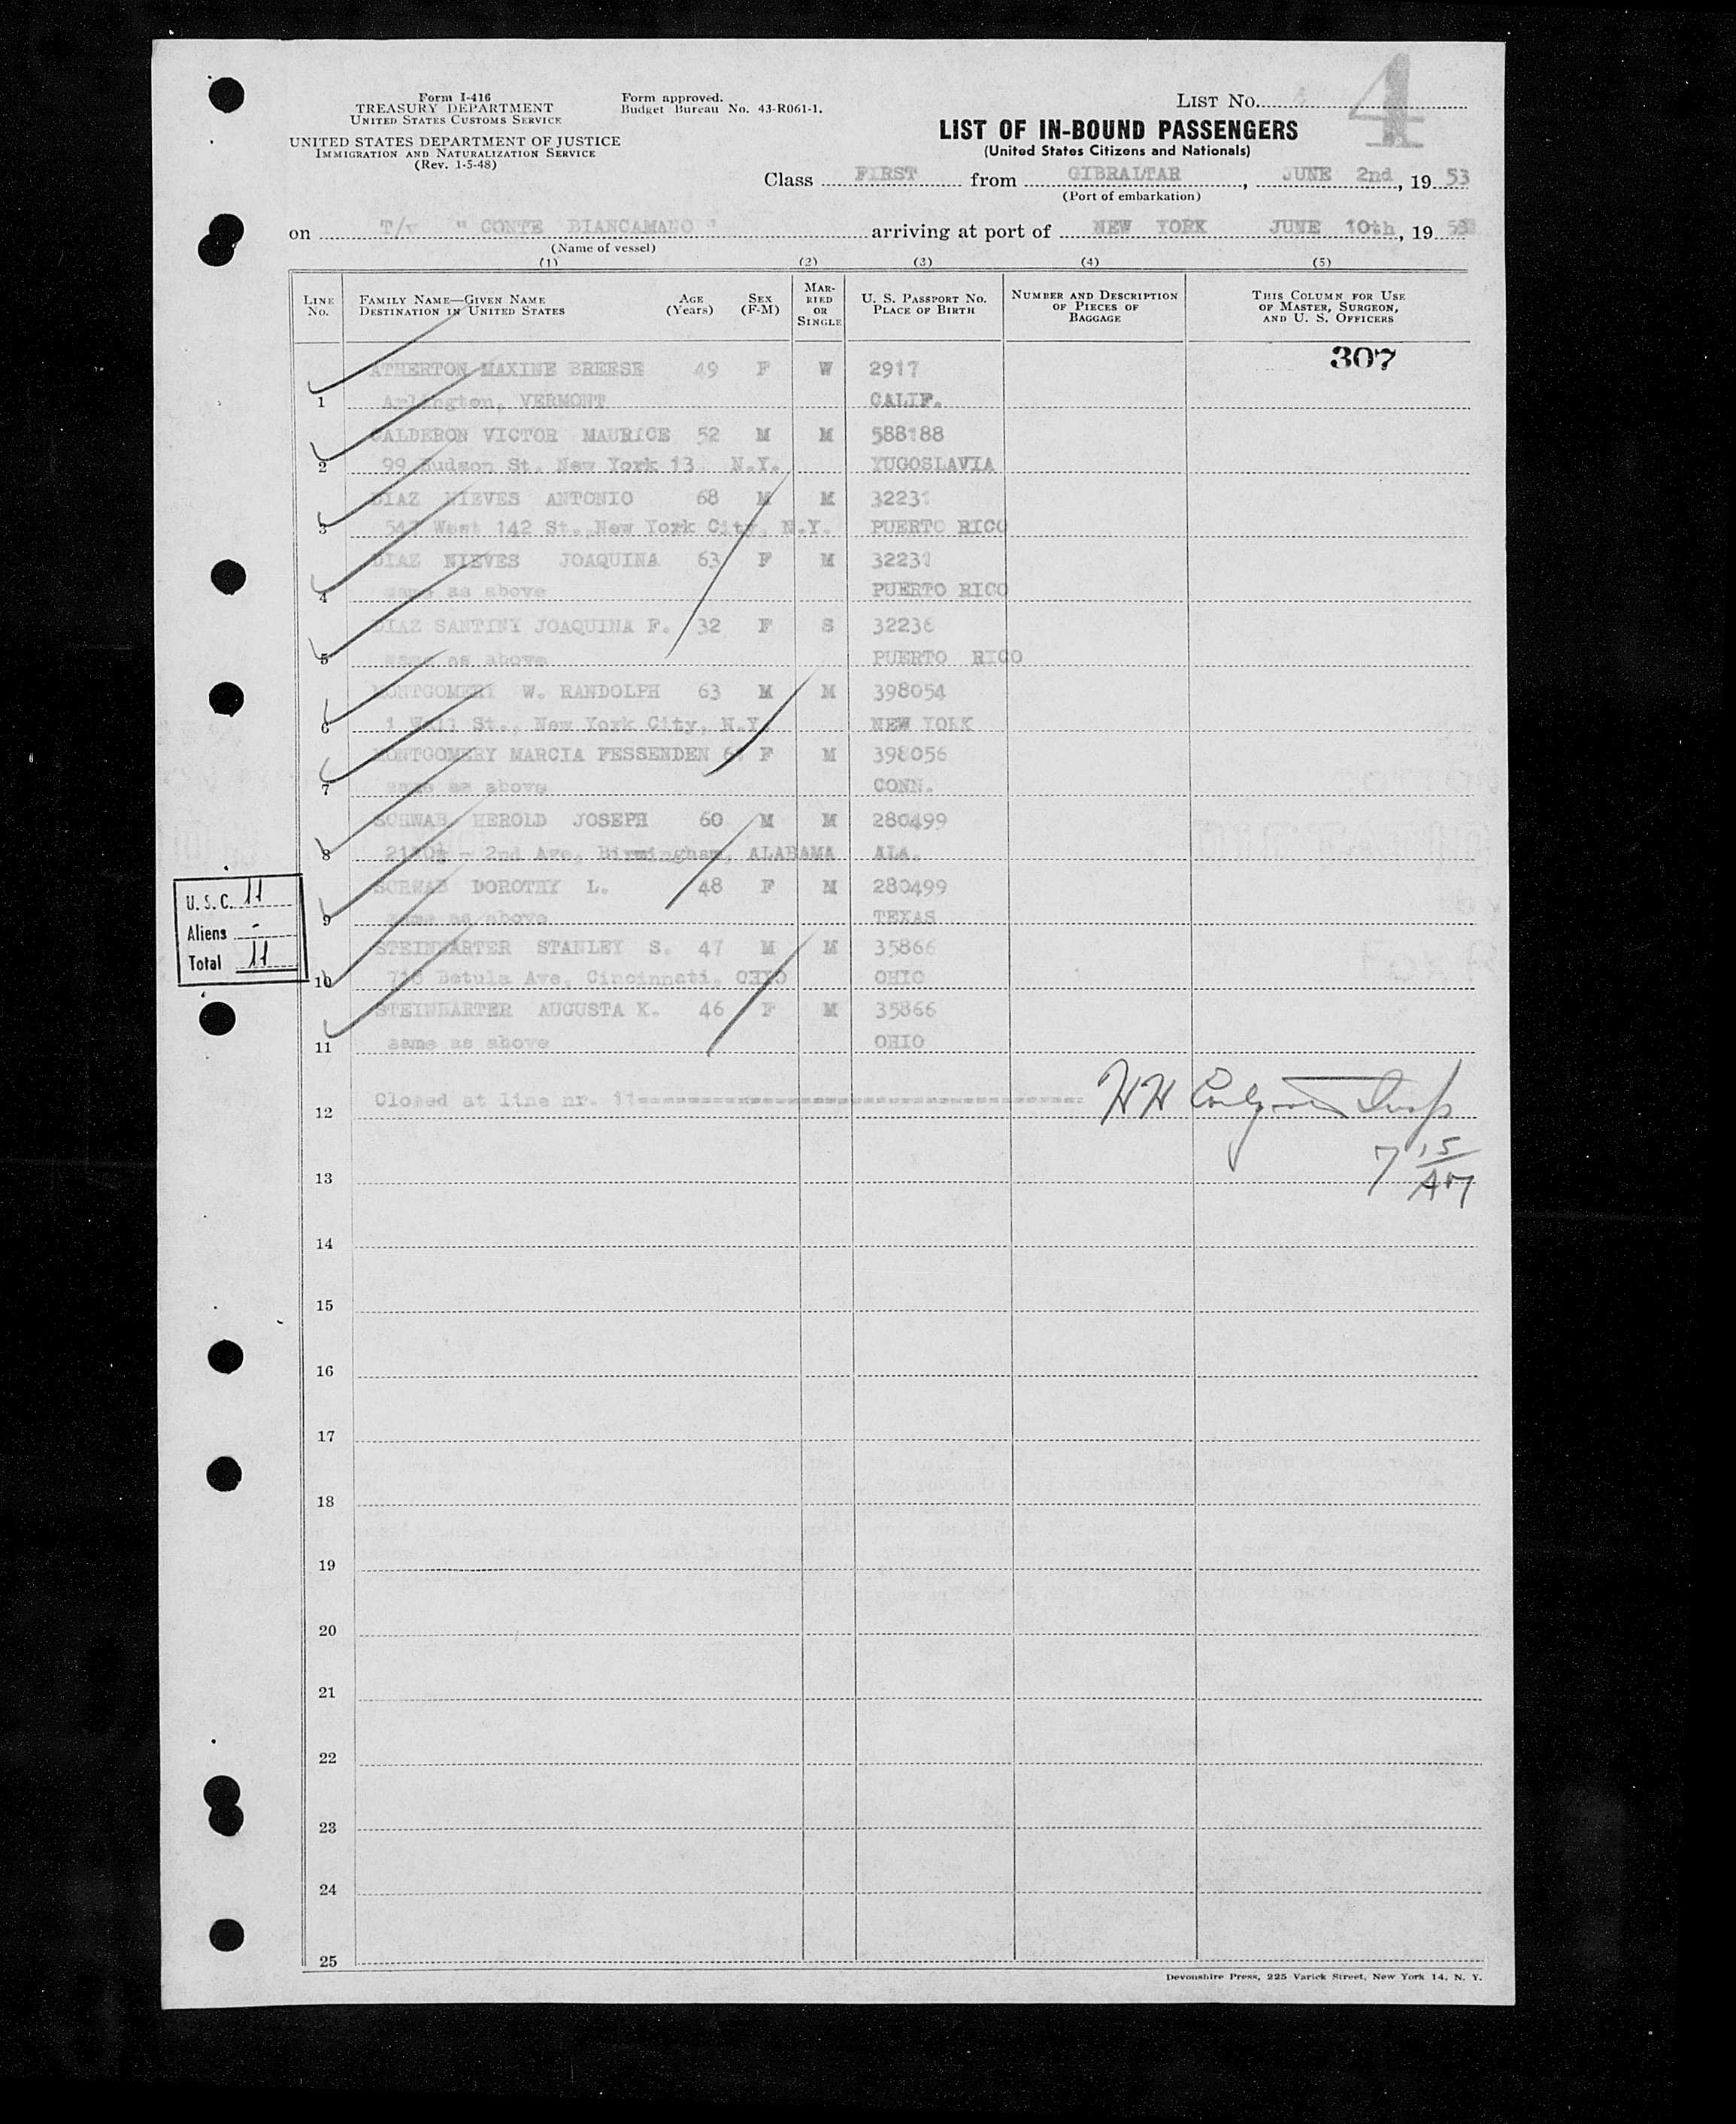 Form I-416
TREASURY DEPARTMENT
UNITED STATES CUSTOMS SERVICE
UNITED STATES DEPARTMENT OF JUSTICE
IMMIGRATION AND NATURALIZATION SERVICE
(Rev. 1-5-48)
Form approved.
Budget Bureau No. 43-R061-1.
LIST No. 4
LIST OF IN-BOUND PASSENGERS
(United States Citizens and Nationals)
Class FIRST from GIBRALTAR, JUNE 2nd, 19 53
(Port of embarkation)
on T/v " CONTE BIANCAMANO " arriving at port of NEW YORK JUNE 10th, 19 53
(Name of vessel)
(1) (2) (3) (4) (5)
LINE No. FAMILY NAME—GIVEN NAME DESTINATION IN UNITED STATES AGE (Years) SEX (F-M) MARRIED OR SINGLE U. S. PASSPORT No. PLACE OF BIRTH NUMBER AND DESCRIPTION OF PIECES OF BAGGAGE THIS COLUMN FOR USE OF MASTER, SURGEON, AND U. S. OFFICERS
307
ATHERTON MAXINE BREESE 49 F W 2917
1 Arlington, VERMONT CALIF.
CALDERON VICTOR MAURICE 52 M M 588188
2 99 Hudson St. New York 13 N.Y. YUGOSLAVIA
DIAZ NIEVES ANTONIO 68 M M 32231
3 West 142 St., New York City, N.Y. PUERTO RICO
DIAZ NIEVES JOAQUINA 63 F M 32231
4 same as above PUERTO RICO
DIAZ SANTINY JOAQUINA F. 32 F S 32236
5 same as above PUERTO RICO
MONTGOMERY W. RANDOLPH 63 M M 398054
6 1 Wall St., New York City, N.Y. NEW YORK
MONTGOMERY MARCIA FESSENDEN F M 398056
7 same as above CONN.
SCHWAB HEROLD JOSEPH 60 M M 280499
8 - 2nd Ave, Birmingham, ALABAMA ALA.
SCHWAB DOROTHY L. 48 F M 280499
9 same as above TEXAS
STEINHARTER STANLEY S. 47 M M 35866
10 Betula Ave, Cincinnati. OHIO OHIO
STEINHARTER AUGUSTA K. 46 F M 35866
11 same as above OHIO
12 Closed at line nr. 11 HH
7 15 AM
13
14
15
16
17
18
19
20
21
22
23
24
25
U. S. C. 11
Aliens -
Total 11
Devonshire Press, 225 Varick Street, New York 14, N. Y.